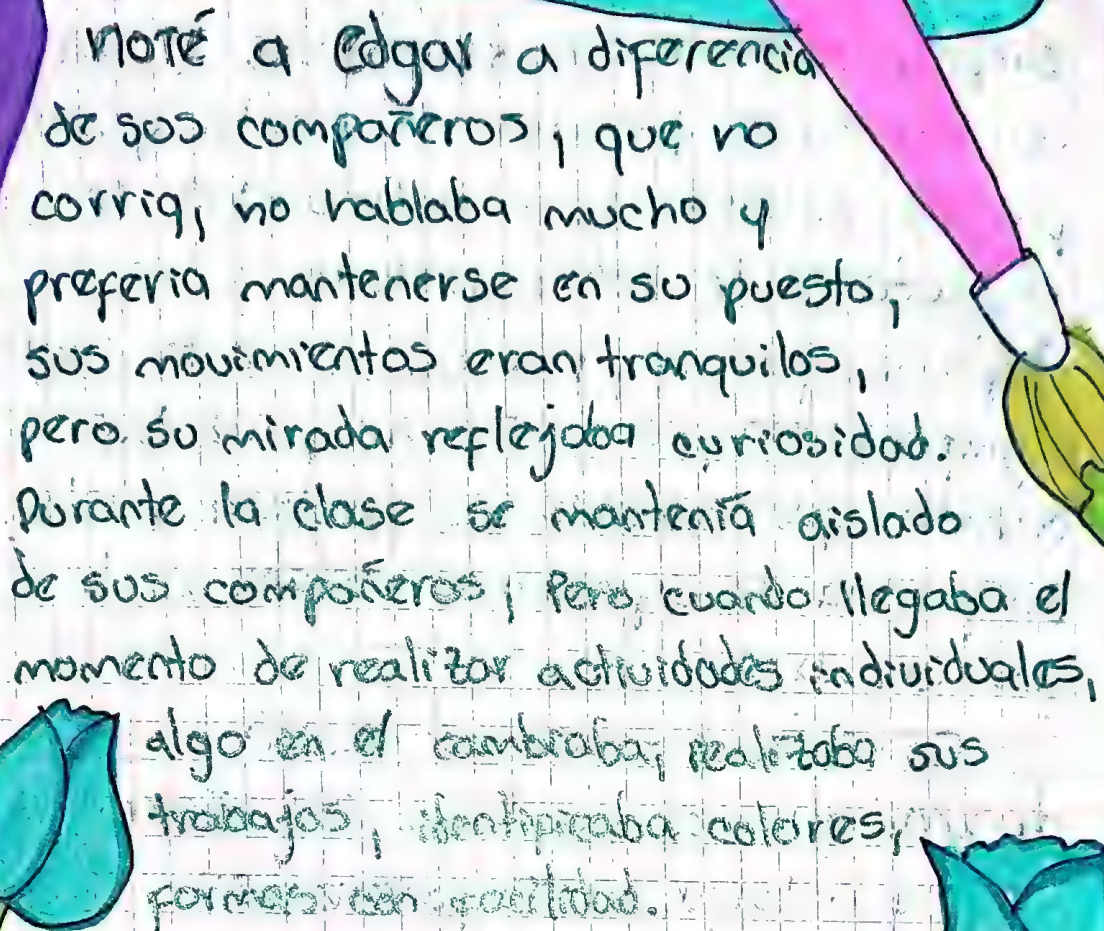 Noté a Edgar a diferencia
de sus compañeros, que no
corria, no hablaba mucho y
preferia mantenerse en su puesto,
sus movimientos eran tranquilos,
pero su mirada reflejaba curiosidad.
Durante la clase se mantenía aislado
de sus compañeros, Pero, cuando llegaba el
momento de realizar actividades individuales,
algo en el cambiaba, realizaba sus
trabajos, identificaba colores,
formas con facilidad.